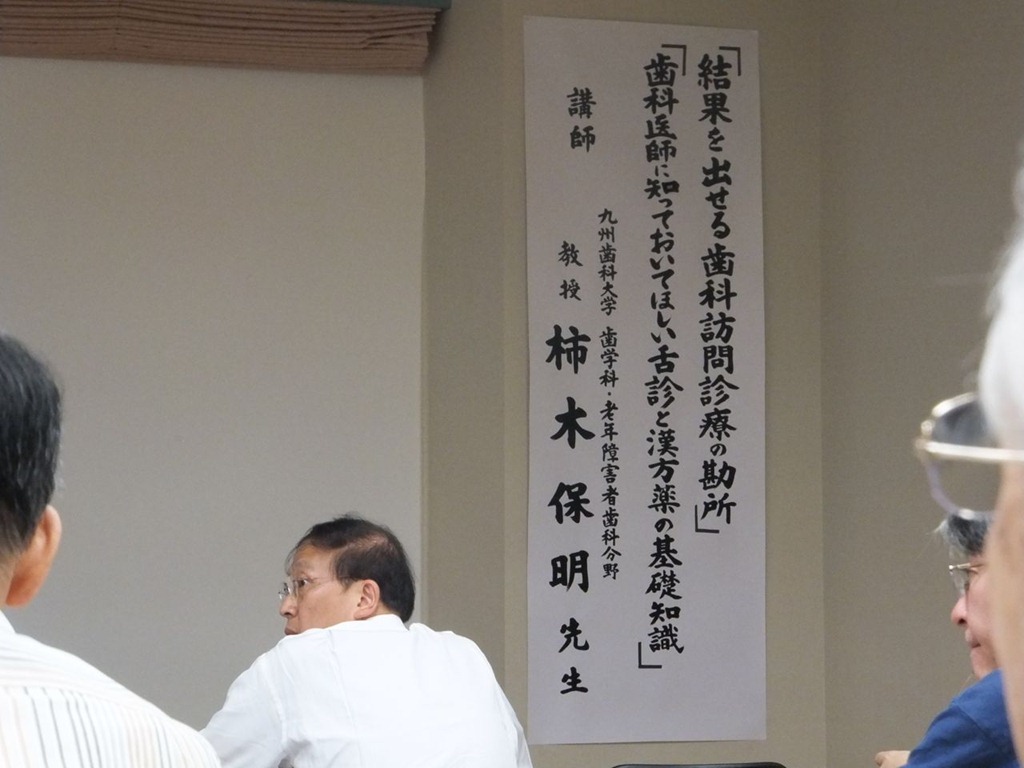 「結果を出せる歯科訪問診療の勘所」
「歯科医師に知っておいてほしい舌診と漢方薬の基礎知識」
講師
九州歯科大学 歯学科・老年障害者歯科分野
教授 柿木保明先生